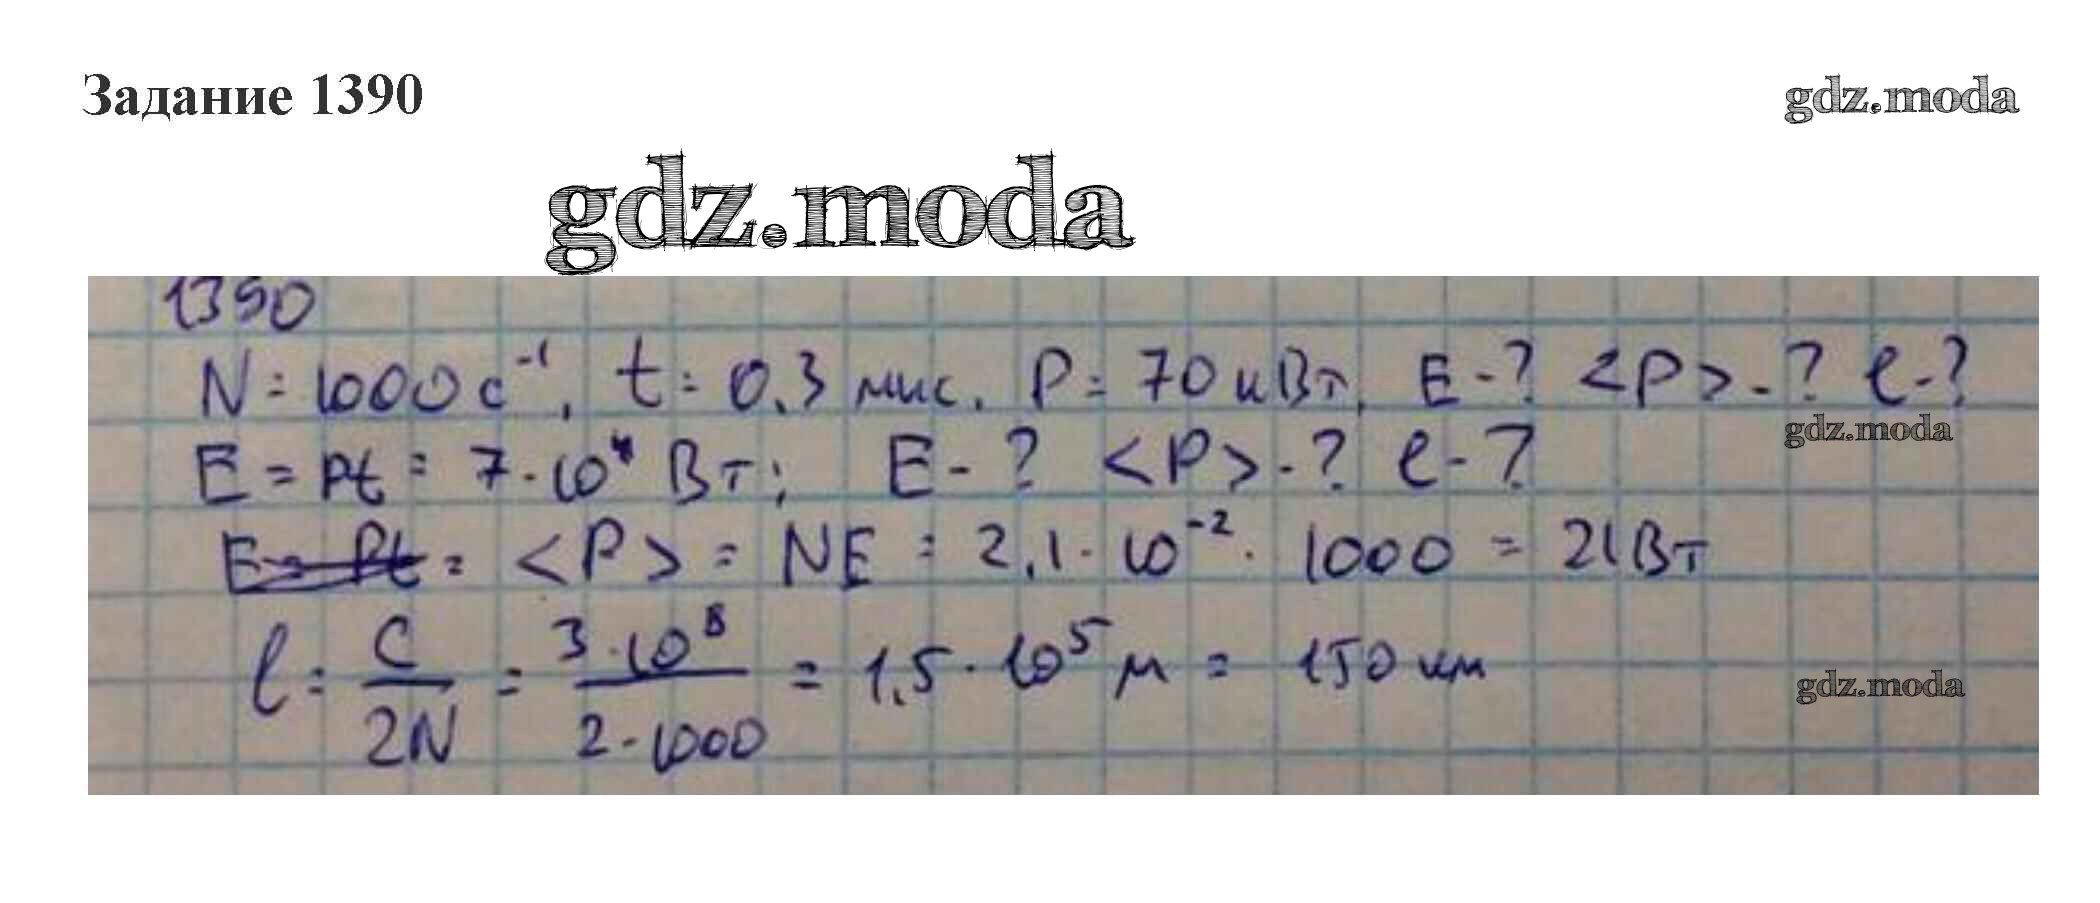 Задание 1390
gdz.moda
gdz.moda
1390
N = 1000 с⁻¹, t = 0.3 мкс. P = 70 кВт, E - ? <P> - ? l - ?
gdz.moda
E = Pt = 7 · 10⁴ Вт; E - ? <P> - ? l - ?
E = Pt = <P> = NE = 2,1 · 10⁻² · 1000 = 21 Вт
l = c/2N = 3·10⁸/2·1000 = 1,5 · 10⁵ м = 150 км
gdz.moda